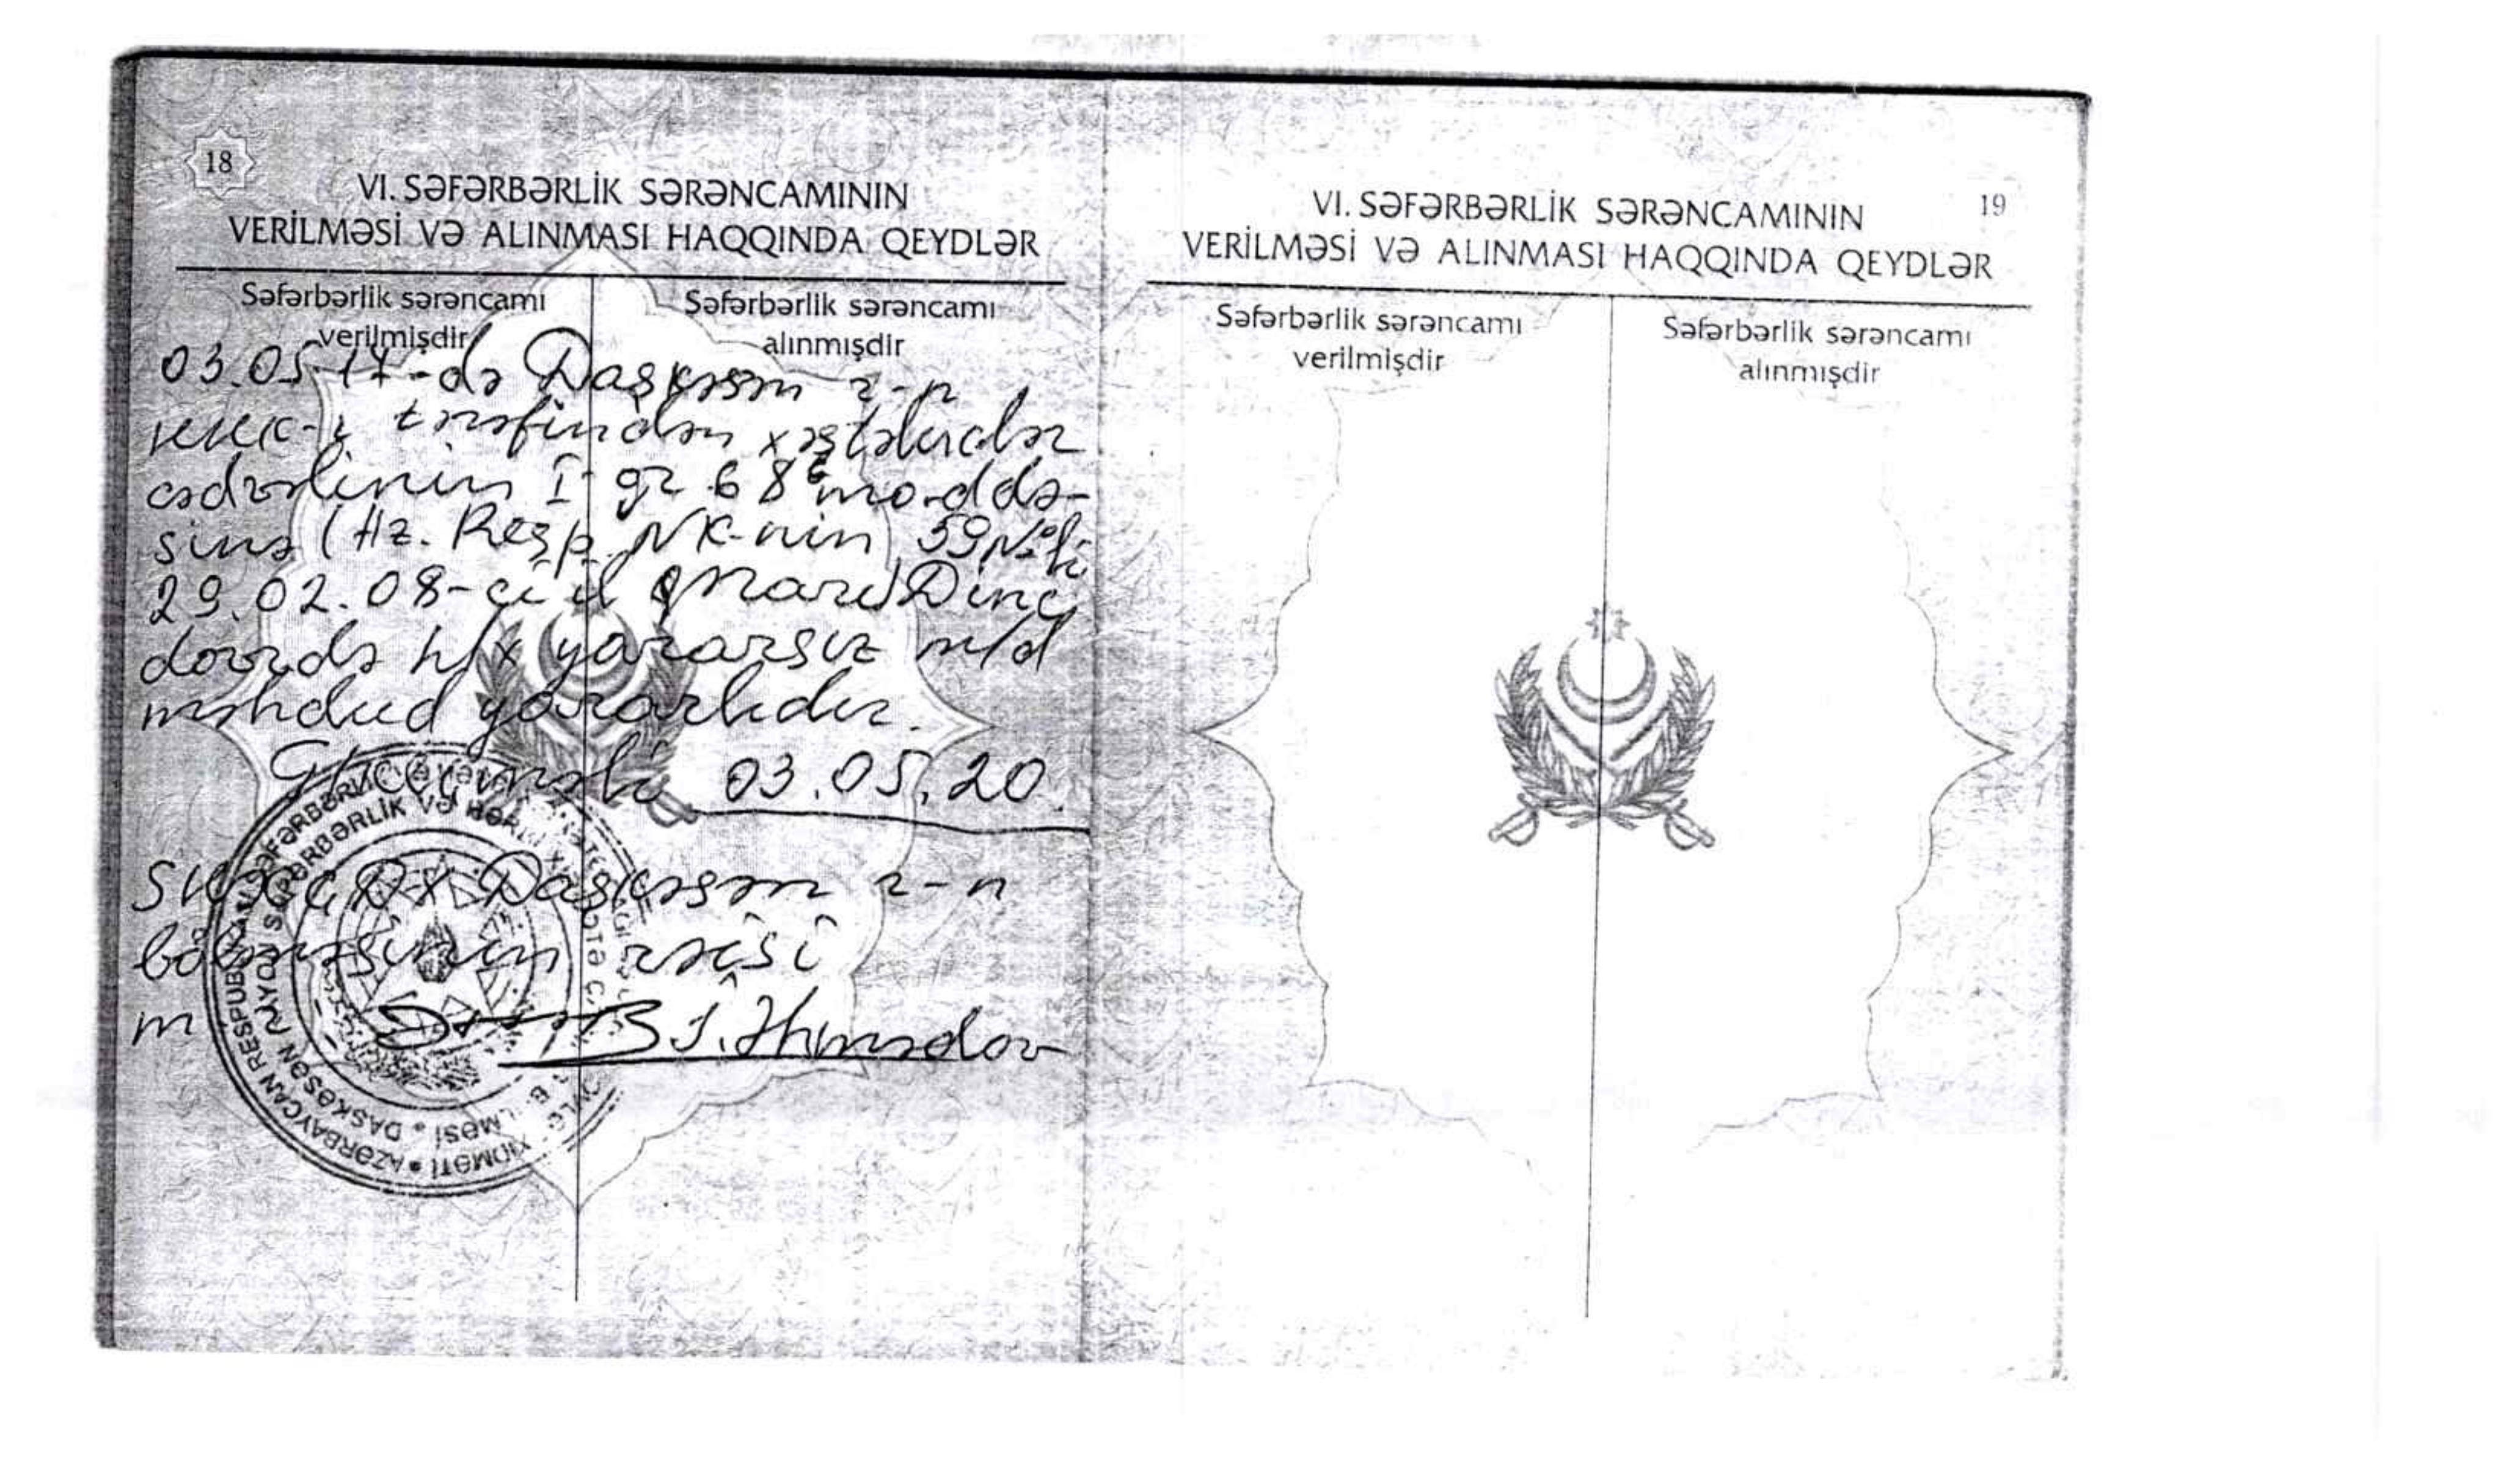 18
VI. SƏFƏRBƏRLİK SƏRƏNCAMININ
VERİLMƏSİ VƏ ALINMASI HAQQINDA QEYDLƏR
Səfərbərlik sərəncamı verilmişdir
Səfərbərlik sərəncamı alınmışdir
03.05.17-də Daşkəsən r-n
tərəfindən xəstəliklər
cədvəlinin I gr 68 maddə-
sinə (Az. Resp. NK-nin 59 №li
29.02.08-ci il qərarı) Dinc
dövrdə h/x yararsız m/d
məhdud yararlıdır.
03.05.20.
SHXÇDX Daşkəsən r-n
bölməsinin rəisi
m İ. Əhmədov
AZƏRBAYCAN RESPUBLİKASI SƏFƏRBƏRLİK VƏ HƏRBİ XİDMƏTƏ ÇAĞIRIŞ ÜZRƏ DÖVLƏT XİDMƏTİ
DAŞKƏSƏN RAYON SƏFƏRBƏRLİK VƏ HƏRBİ XİDMƏTƏ ÇAĞIRIŞ BÖLMƏSİ
19
VI. SƏFƏRBƏRLİK SƏRƏNCAMININ
VERİLMƏSİ VƏ ALINMASI HAQQINDA QEYDLƏR
Səfərbərlik sərəncamı verilmişdir
Səfərbərlik sərəncamı alınmışdir